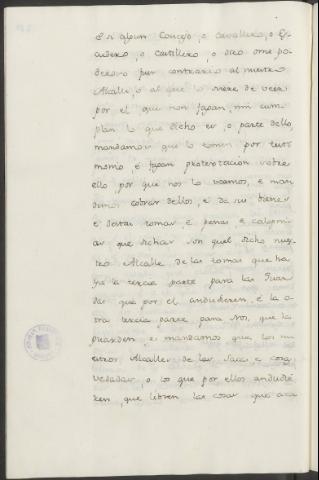 E si algun Concejo, o Cavallero, o Es
cudero, o Castillero, o otro ome po
deroso fuer contrario al nuestro
Alcalle, o al que lo oviere de veer
por el que non fagan, nin cum
plan lo que dicho es, o parte dello,
mandamos que lo tomen por testi
monio e fagan protestacion sobre
ello por que nos lo veamos, e man
demos cobrar dellos, e de sus bienes
e destas tomas e penas e calopni
as que dichas son quel dicho nues
tro Alcalle de las tomas que ha
ya la tercia parte para las Guar
das que por el andudieren, e la o
tra tercia parte para Nos, que la
guarden e mandamos que los nu
estros Alcalles de las Sacas e cosas
vedadas, o los que por ellos andudie
ren, que libren las cosas que aca